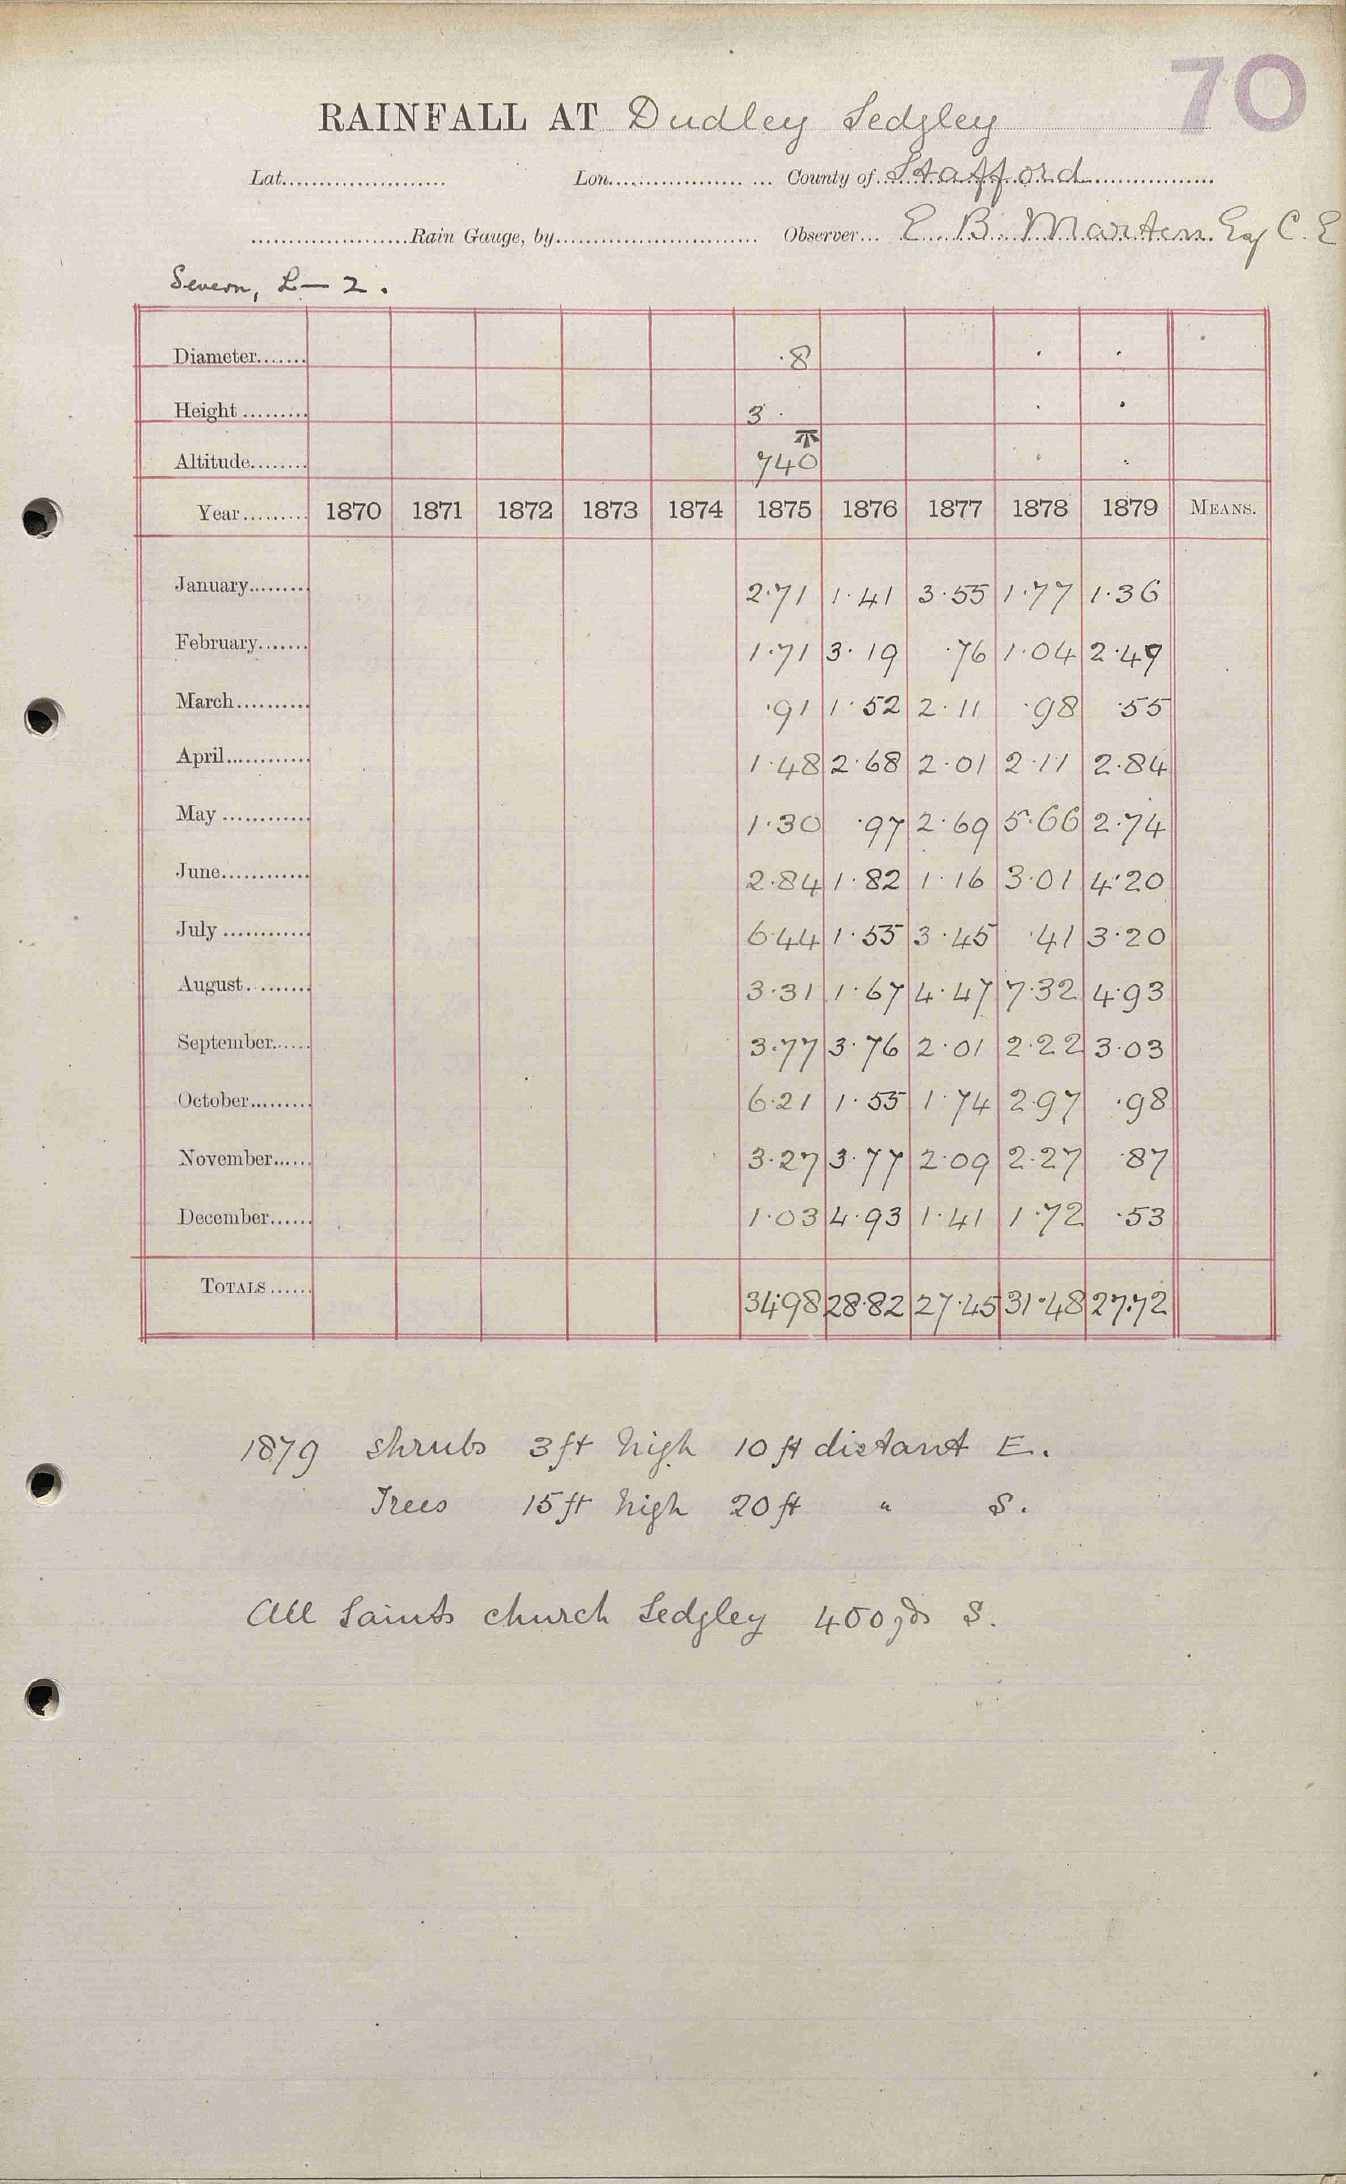 70
RAINFALL AT Dudley Sedgley
Lat. Lon. County of Stafford
Rain Gauge, by Observer E B Marten Esq C. E
Severn, L—2.
Diameter ·8
Height 3 ·
Altitude 740
Year 1870 1871 1872 1873 1874 1875 1876 1877 1878 1879 MEANS.
January 2·71 1·41 3·55 1·77 1·36
February 1·71 3·19 ·76 1·04 2·49
March ·91 1·52 2·11 ·98 ·55
April 1·48 2·68 2·01 2·11 2·84
May 1·30 ·97 2·69 5·66 2·74
June 2·84 1·82 1·16 3·01 4·20
July 6·44 1·55 3·45 ·41 3·20
August 3·31 1·67 4·47 7·32 4·93
September 3·77 3·76 2·01 2·22 3·03
October 6·21 1·55 1·74 2·97 ·98
November 3·27 3·77 2·09 2·27 ·87
December 1·03 4·93 1·41 1·72 ·53
TOTALS 34·98 28·82 27·45 31·48 27·72
1879 shrubs 3ft high 10 ft distant E.
Trees 15ft high 20ft " S.
All Saints church Sedgley 400yds S.